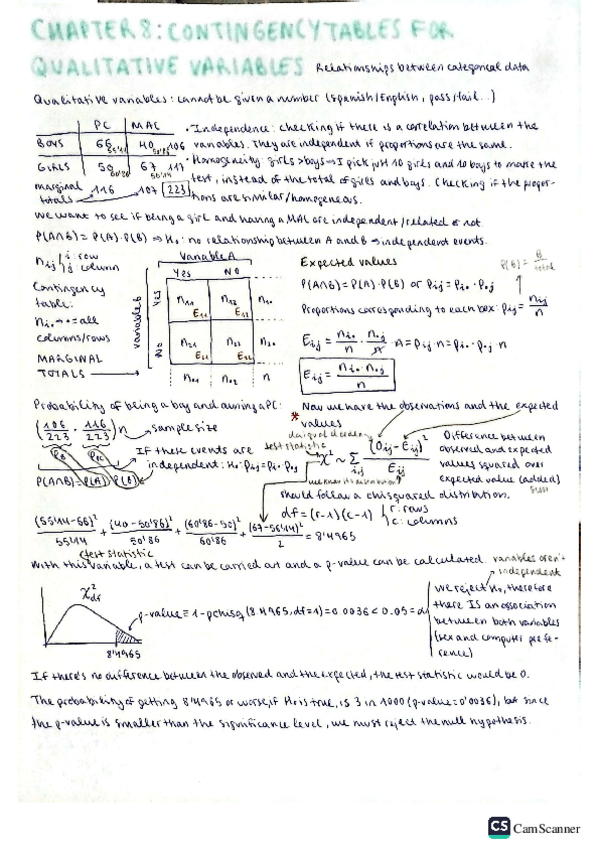 CHAPTER 8: CONTINGENCY TABLES FOR
QUALITATIVE VARIABLES Relationships between categorical data
Qualitative variables: cannot be given a number (Spanish/English, pass/fail...)
PC MAC
BOYS 66 55'14 40 50'86 106
GIRLS 50 60'86 67 56'14 117
marginal totals 116 107 223
· Independence: checking if there is a correlation between the
variables. They are independent if proportions are the same.
· Homogeneity: girls > boys → I pick just 10 girls and 10 boys to make the
test, instead of the total of girls and boys. Checking if the propor-
tions are similar/homogeneous.
We want to see if being a girl and having a MAC are independent/related or not.
P(A∩B) = P(A)·P(B) ⇒ H₀: no relationship between A and B → independent events.
nij i: row
j: column
Contingency
table:
ni• → • = all
columns/rows
MARGINAL
TOTALS →
Variable A
Yes No
Variable B
Yes n11 E11 n12 E12 n1•
No n21 E21 n22 E22 n2•
n•1 n•2 n
Expected values
P(B) = B/total
P(A∩B) = P(A)·P(B) or pij = pi•·p•j
Proportions corresponding to each box: pij = nij/n
Eij = ni•/n · n•j/n · n = pij·n = pi•·p•j·n
Eij = ni•·n•j/n
Probability of being a boy and owning a PC:
(106/223 · 116/223)n → sample size
PB PPC
P(A∩B) = P(A)·P(B)
If these events are
independent: H₀: pij = pi•·p•j
* Now we have the observations and the expected
values
test statistic
χ² ~ Σi,j (Oij - Eij)²/Eij
we know its distribution
Difference between
observed and expected
values squared over
expected value (added)
should follow a chi squared distribution.
df = (r-1)(c-1) r: rows
c: columns
(55'14-66)²/55'14 + (40-50'86)²/50'86 + (60'86-50)²/60'86 + (67-56'14)²/2 = 8'4965
test statistic
With this variable, a test can be carried out and a p-value can be calculated.
variables aren't
independent
χ²df
8'4965
p-value = 1-pchisq(8'4965, df=1) = 0'0036 < 0.05 = α
we reject H₀, therefore
there IS an association
between both variables
(sex and computer prefe-
rence)
If there's no difference between the observed and the expected, the test statistic would be 0.
The probability of getting 8'4965 or worse, if H₀ is true, is 3 in 1000 (p-value = 0'0036), but since
the p-value is smaller than the significance level, we must reject the null hypothesis.
CS CamScanner